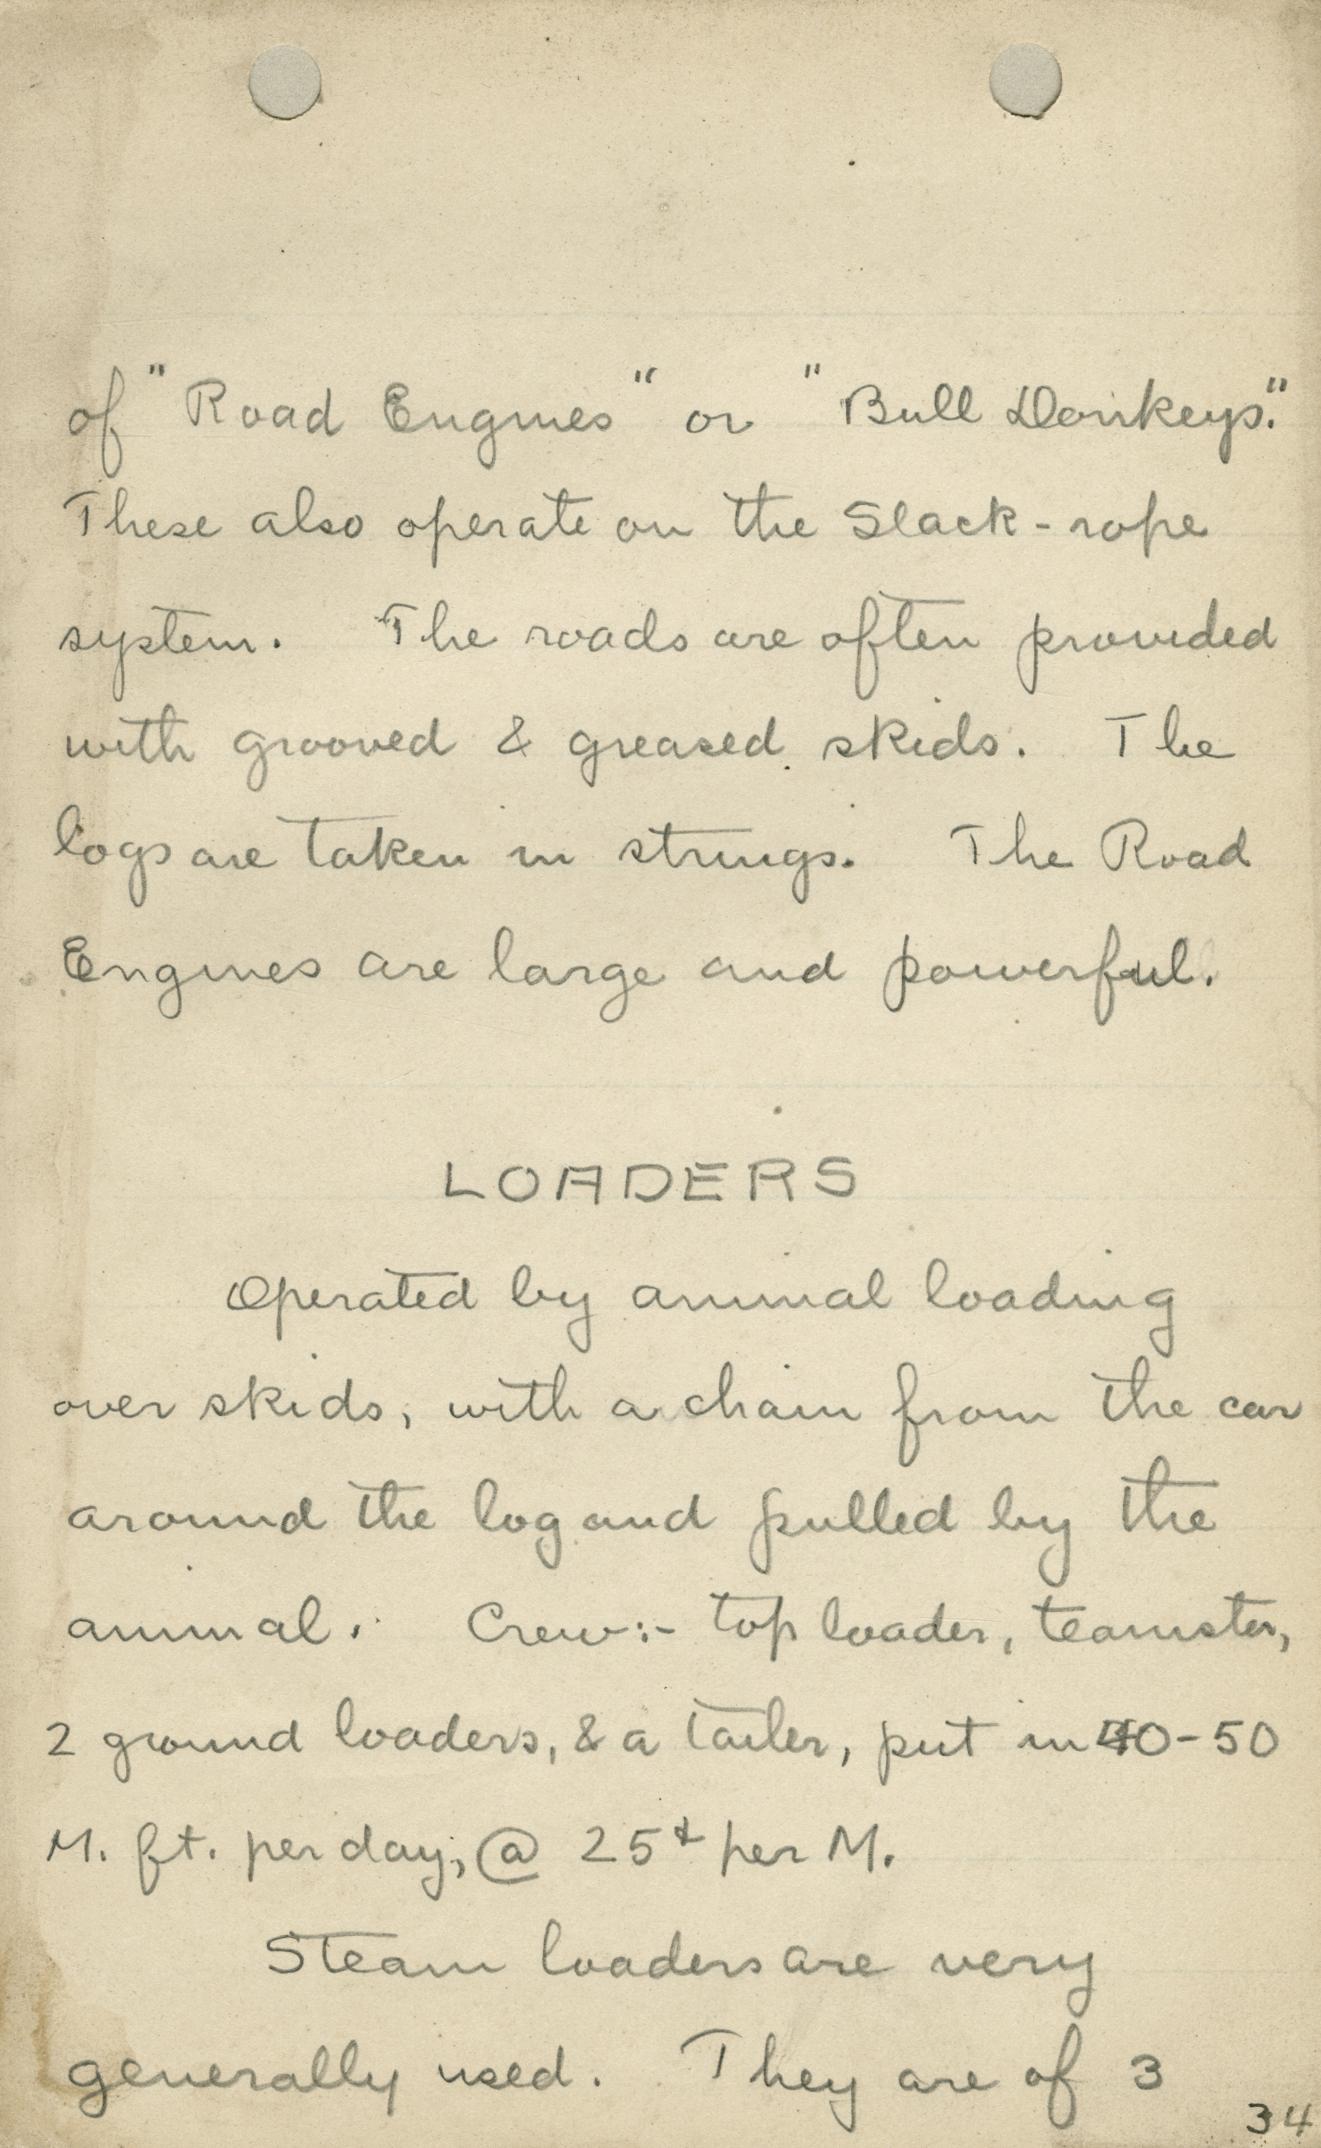 of "Road Engines" or "Bull Donkeys."
These also operate on the Slack-rope
system. The roads are often provided
with grooved & greased skids. The
logs are taken in strings. The Road
Engines are large and powerful.
LOADERS
Operated by animal loading
over skids, with a chain from the car
around the log and pulled by the
animal. Crew:- top loader, teamster,
2 ground loaders, & a tailer, put in 40-50
M. ft. per day, @ 25¢ per M.
Steam loaders are very
generally used. They are of 3
34